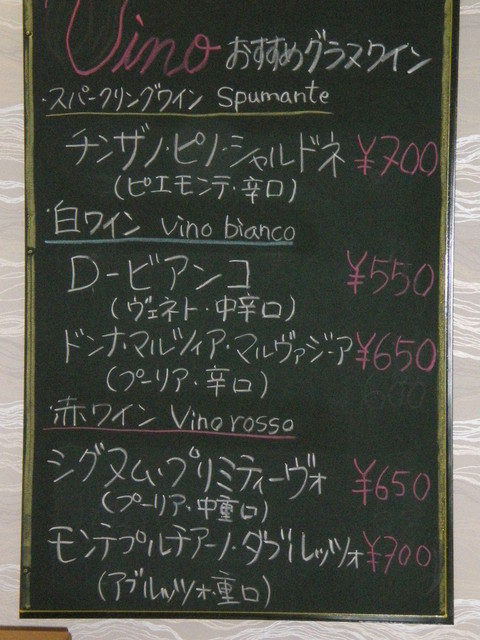 Vino おすすめグラスワイン
・スパークリングワイン Spumante
チンザノ・ピノ・シャルドネ ¥700
(ピエモンテ・辛口)
・白ワイン vino bianco
D-ビアンコ ¥550
(ヴェネト・中辛口)
ドンナ・マルツィア・マルヴァジーア ¥650
(プーリア・辛口)
・赤ワイン Vino rosso
シグヌム・プリミティーヴォ ¥650
(プーリア・中重口)
モンテプルチアーノ・ダブルッツォ ¥700
(アブルッツォ・重口)